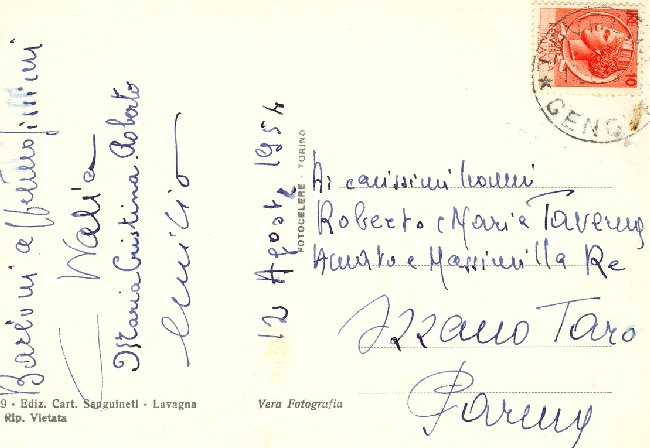 Bacioni affettuosissimi
Walia
Maria Cristina Roberto
Emilio
12 Agost. 1954
FOTOCELERE - TORINO
Ai carissimi nonni
Roberto e Maria Taverna
Amato e Massimilla Re
Izzano Taro
Parma
10
GENOVA
9 - Ediz. Cart. Sanguineti - Lavagna
Rip. Vietata
Vera Fotografia